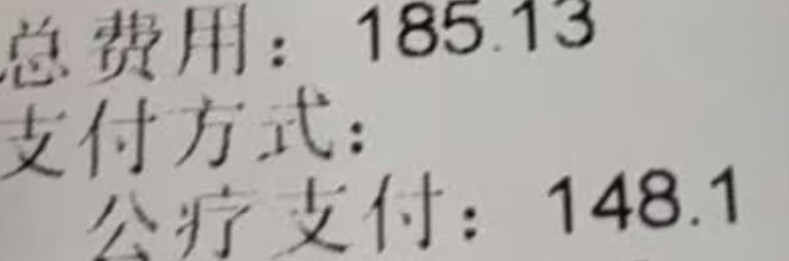 总费用：185.13
支付方式：
公疗支付：148.1